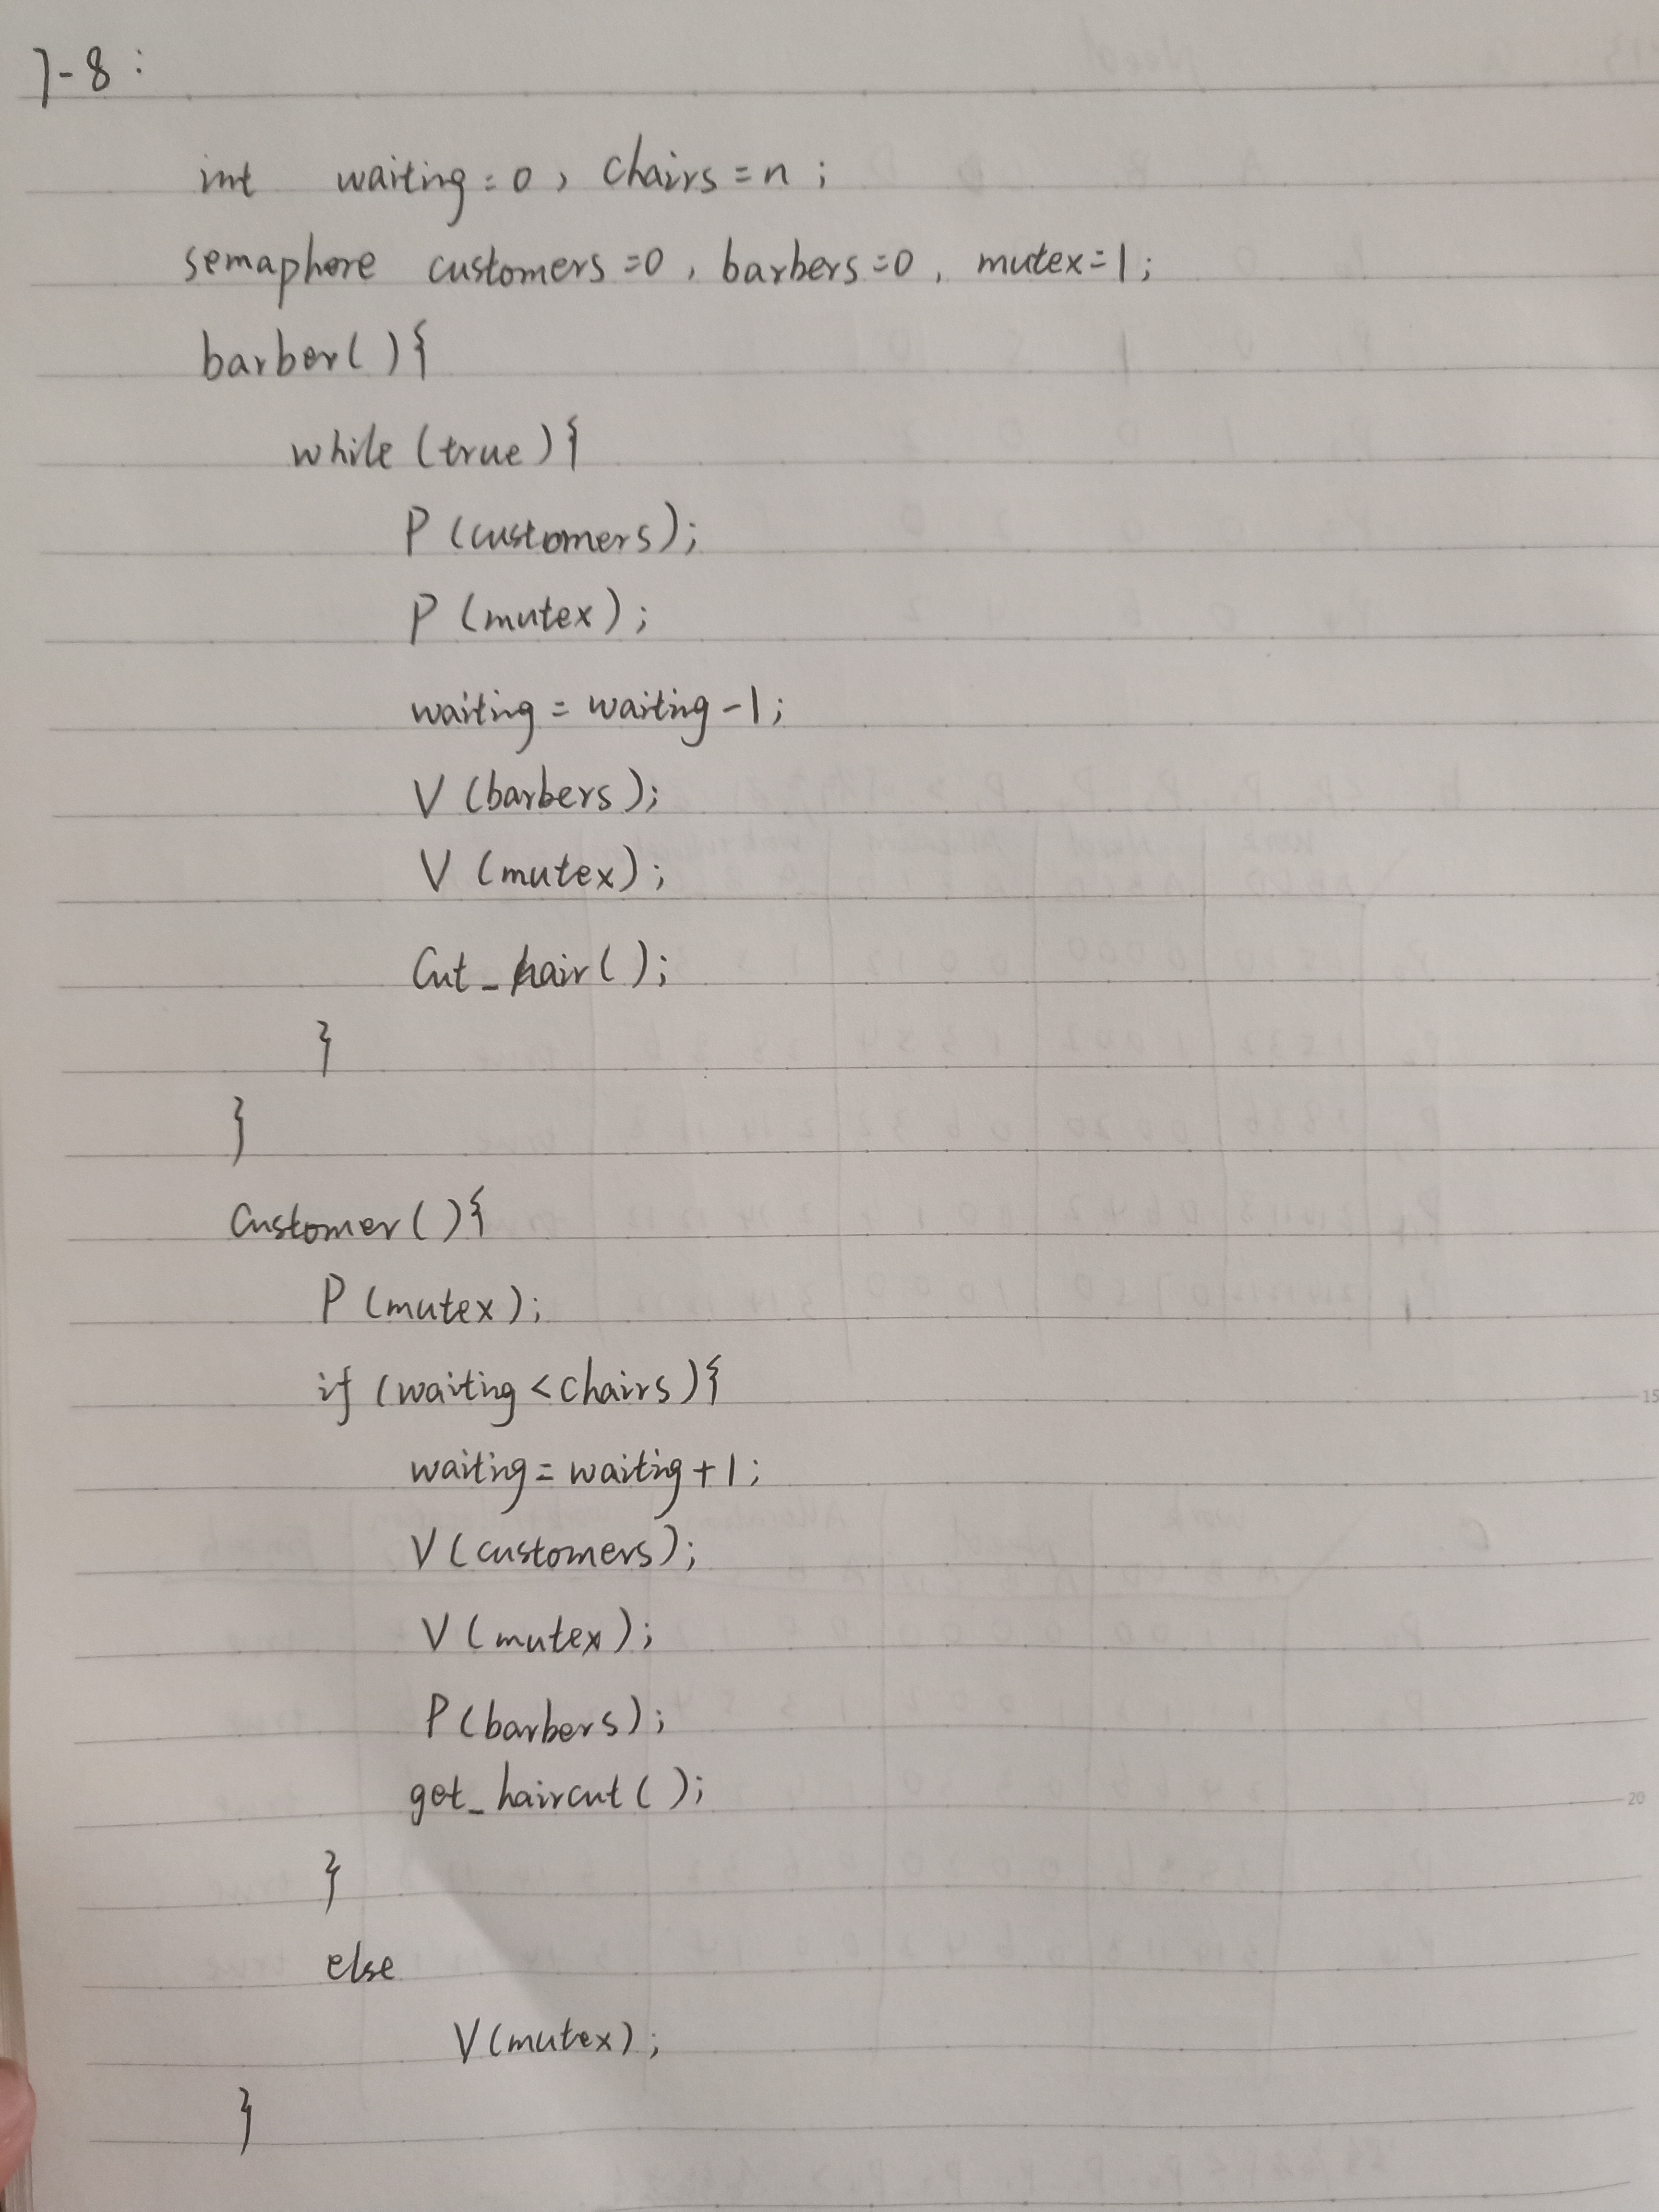 7-8:
int waiting=0, chairs=n;
semaphore customers=0, barbers=0, mutex=1;
barber(){
while(true){
P(customers);
P(mutex);
waiting=waiting-1;
V(barbers);
V(mutex);
Cut_hair();
}
}
Customer(){
P(mutex);
if(waiting<chairs){
waiting=waiting+1;
V(customers);
V(mutex);
P(barbers);
get_haircut();
}
else
V(mutex);
}
15
20